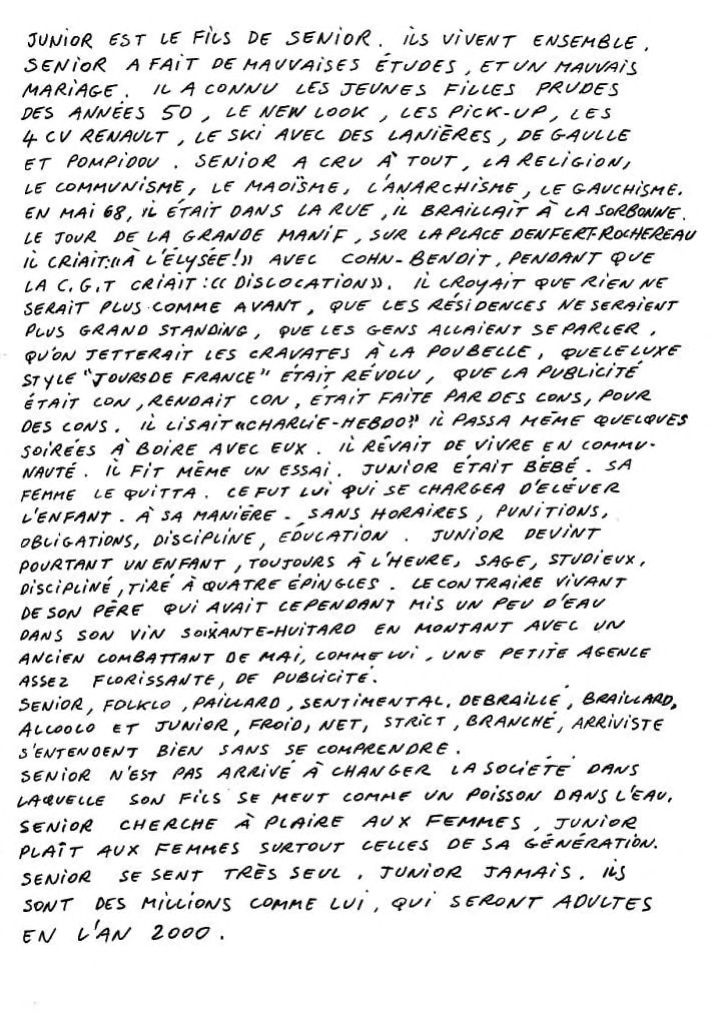 JUNIOR EST LE FILS DE SENIOR. ILS VIVENT ENSEMBLE.
SENIOR A FAIT DE MAUVAISES ÉTUDES, ET UN MAUVAIS
MARIAGE. IL A CONNU LES JEUNES FILLES PRUDES
DES ANNÉES 50, LE NEW LOOK, LES PICK-UP, LES
4 CV RENAULT, LE SKI AVEC DES LANIÈRES, DE GAULLE
ET POMPIDOU. SENIOR A CRU À TOUT, LA RELIGION,
LE COMMUNISME, LE MAOÏSME, L'ANARCHISME, LE GAUCHISME.
EN MAI 68, IL ÉTAIT DANS LA RUE, IL BRAILLAIT À LA SORBONNE.
LE JOUR DE LA GRANDE MANIF, SUR LA PLACE DENFERT-ROCHEREAU
IL CRIAIT:«À L'ÉLYSÉE!» AVEC COHN-BENDIT, PENDANT QUE
LA C.G.T CRIAIT:«DISLOCATION». IL CROYAIT QUE RIEN NE
SERAIT PLUS COMME AVANT, QUE LES RÉSIDENCES NE SERAIENT
PLUS GRAND STANDING, QUE LES GENS ALLAIENT SE PARLER,
QU'ON JETTERAIT LES CRAVATES À LA POUBELLE, QUE LE LUXE
STYLE "JOURS DE FRANCE" ÉTAIT RÉVOLU, QUE LA PUBLICITÉ
ÉTAIT CON, RENDAIT CON, ÉTAIT FAITE PAR DES CONS, POUR
DES CONS. IL LISAIT «CHARLIE-HEBDO» IL PASSA MÊME QUELQUES
SOIRÉES À BOIRE AVEC EUX. IL RÊVAIT DE VIVRE EN COMMU-
NAUTÉ. IL FIT MÊME UN ESSAI. JUNIOR ÉTAIT BÉBÉ. SA
FEMME LE QUITTA. CE FUT LUI QUI SE CHARGEA D'ELÉVER
L'ENFANT. À SA MANIÈRE. SANS HORAIRES, PUNITIONS,
OBLIGATIONS, DISCIPLINE, ÉDUCATION. JUNIOR DEVINT
POURTANT UN ENFANT, TOUJOURS À L'HEURE, SAGE, STUDIEUX,
DISCIPLINÉ, TIRÉ À QUATRE ÉPINGLES. LE CONTRAIRE VIVANT
DE SON PÈRE QUI AVAIT CEPENDANT MIS UN PEU D'EAU
DANS SON VIN SOIXANTE-HUITARD EN MONTANT AVEC UN
ANCIEN COMBATTANT DE MAI, COMME LUI, UNE PETITE AGENCE
ASSEZ FLORISSANTE, DE PUBLICITÉ.
SENIOR, FOLKLO, PAILLARD, SENTIMENTAL, DEBRAILLÉ, BRAILLARD,
ALCOOLO ET JUNIOR, FROID, NET, STRICT, BRANCHÉ, ARRIVISTE
S'ENTENDENT BIEN SANS SE COMPRENDRE.
SENIOR N'EST PAS ARRIVÉ À CHANGER LA SOCIÉTÉ DANS
LAQUELLE SON FILS SE MEUT COMME UN POISSON DANS L'EAU.
SENIOR CHERCHE À PLAIRE AUX FEMMES, JUNIOR
PLAÎT AUX FEMMES SURTOUT CELLES DE SA GÉNÉRATION.
SENIOR SE SENT TRÈS SEUL, JUNIOR JAMAIS. ILS
SONT DES MILLIONS COMME LUI, QUI SERONT ADULTES
EN L'AN 2000.